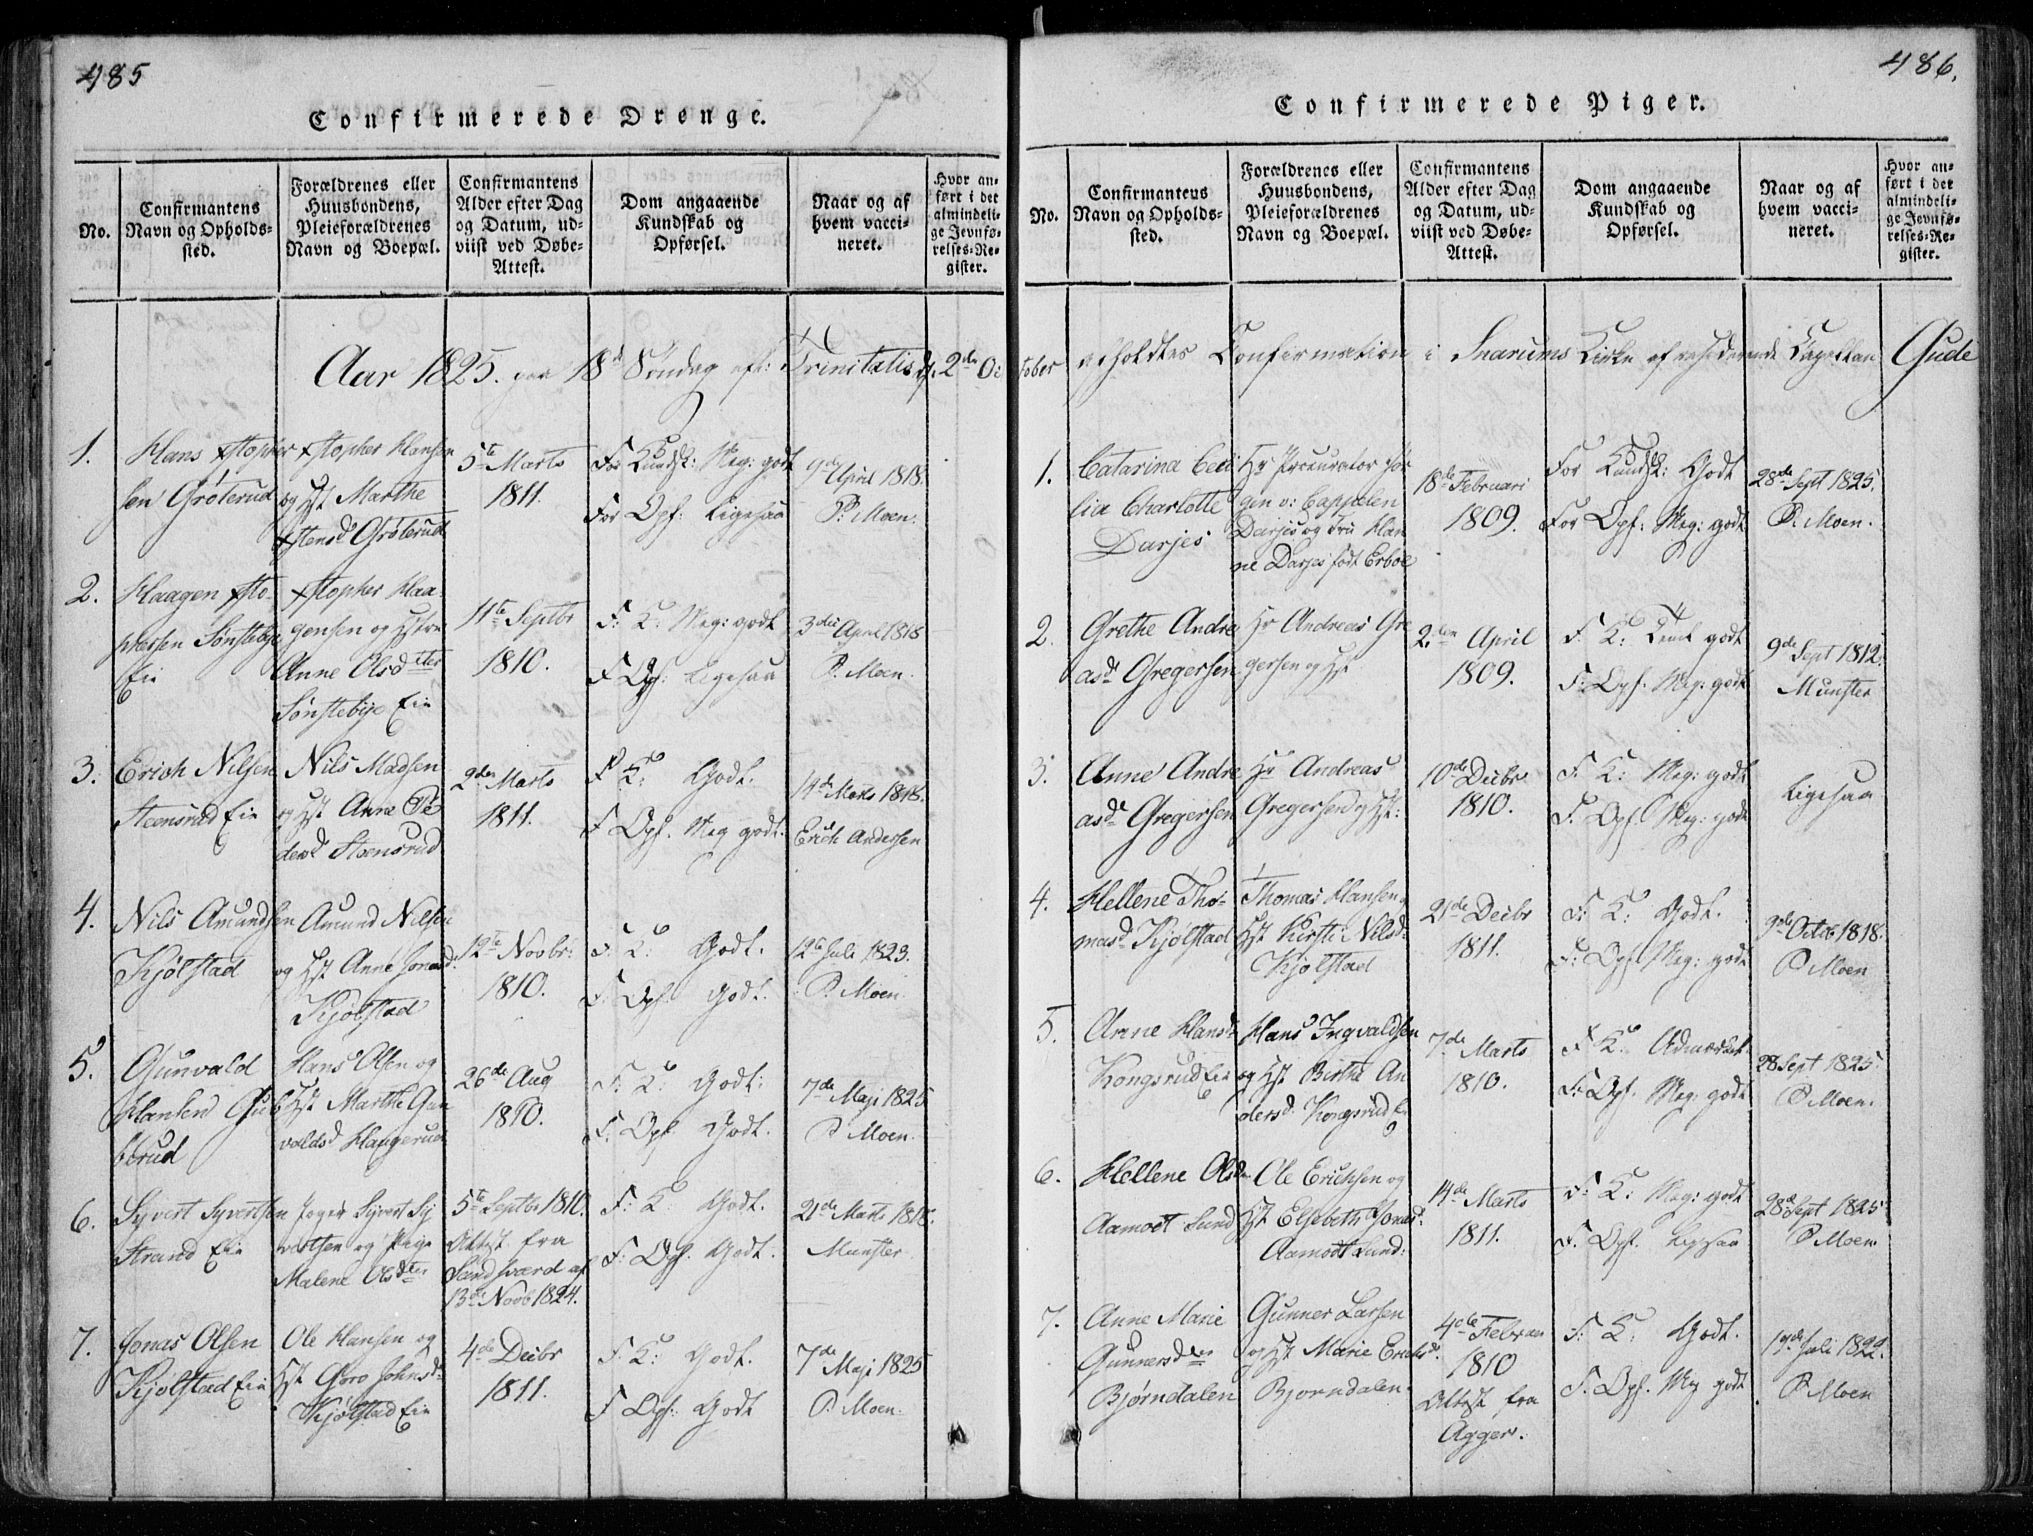 485
Confirmerede Drenge.
No.
Confirmantens
Navn og Opholds-
sted.
Forældrenes eller
Huusbondens,
Pleieforældrenes
Navn og Boepæl.
Confirmantens
Alder efter Dag
og Datum, ud-
viist ved Døbe-
Attest.
Dom angaaende
Kundskab og
Opførsel.
Naar og af
hvem vacci-
neret.
Hvor an-
ført i det
almindeli-
ge Jevnfø-
relses-Re-
gister.
Aar 1825. paa 18de Søndag eft: Trinitatis d: 2den Oc
1.
Hans Xstopher
sen Grøterud
Xstopher Hansen
og Hst Marthe
Xstensd Grøterud
5te Marts
1811.
For Kundsk: Meg: godt
For Opf: Ligesaa
9de April 1818.
P: Moen.
2.
Haagen Xsto-
phersen Sønsteby
Eie
Xstopher Haa
gensen og Hstru
Anne Olsdtter
Sønstebye Eie
11te Septbr
1810.
F: K: Meg: godt
F Opf: Ligesaa
3die April 1818
P. Moen.
3.
Erich Nilsen
Steensrud Eie
Nils Madsen
og Hst Anne Pe
dersd Steensrud
2den Marts
1811.
F K: Godt.
F Opf. Meg godt.
14de Marts 1818.
Erich Andersen
4.
Nils Amundsen
Kjølstad
Amund Nilsen
og Hst Anne Jonasd.
Kjølstad
12te Novbr:
1810.
F: K: Godt.
F. Opf. Godt.
12te Juli 1823.
P. Moen.
5.
Gunvald
Hansen Gub
berud
Hans Olsen og
Hst Marthe Gun
valdsd Haugerud
26de Aug
1810.
F: K: Godt:
F: Opf. Godt.
7de Maji 1825
P Moen.
6.
Syvert Syvertsen
Strand Eie
Syvert Sy
vertsen og Pige
Malene Olsdtter
5te Septbr 1810.
Attest fra
Sandsværd af
13de Novb 1824.
F: K: Godt.
F: Opf. Godt.
21de Marts 1818.
Munster
7.
Jonas Olsen
Kjølstad Eie
Ole Hansen og
Hst Goro Johnsd.
Kjølstad Eie
4de Decbr
1811.
F: K: Godt.
F Opf: Godt
7de Maji 1825
P. Moen.
486.
Confirmerede Piger.
No.
Confirmantens
Navn og Opholds-
sted.
Forældrenes eller
Huusbondens,
Pleieforældrenes
Navn og Boepæl.
Confirmantens
Alder efter Dag
og Datum, ud-
viist ved Døbe-
Attest.
Dom angaaende
Kundskab og
Opførsel.
Naar og af
hvem vacci-
neret.
Hvor an-
ført i det
almindeli-
ge Jevnfø-
relses-Re-
gister.
tober holdtes Confirmation i Snarums Kirke af residerende Capellan Gude
1.
Catarina Ceci
lia Charlotte
Darjes
Hr Procurator Jør
gen v: Cappelen
Darjes og Fru Han
ne Darjes født Erboe
18de Februari
1809.
For Kundsk: Godt
For Opf: Meg: godt
28de Sept 1825.
P. Moen.
2.
Grethe Andre
asd. Gregersen
Hr Andreas Gre
gersen og Hst
2den April
1809.
F. K: Teml godt
F: Opf. Meg: godt
9de Sept 1812.
Munster
3.
Anne Andre
asd. Gregersen
Hr Andreas
Gregersen og Hst:
10de Decbr
1810.
F. K: Meg: godt
F. Opf. Meg: godt
Ligesaa
4.
Hellene Tho-
masd. Kjølstad
Thomas Hansen
Hst Kirsti Nilsd.
Kjølstad
21de Decbr
1811.
F: K: Godt.
F: Opf. Meg: godt
9de Octob 1818.
P. Moen
5.
Anne Hansd.
Kongsrud Eie
Hans Ingvaldsen
og Hst Birthe An
dersd. Kongsrud Eie
7de Marts
1810.
F K: Admærket
F: Opf. Meg: godt
28 Sept 1825.
P Moen.
6.
Hellene Olsd.
Aamodt Lund
Ole Erichsen og
Hst Elsebeth Jonasd.
Aamodt Lund:
14de Marts
1811.
F: K: Meg: godt
F. Opf. Ligesaa
28de Sept 1825
P Moen
7.
Anne Marie
Gunnersdtter
Bjørndalen
Gunner Larsen
og Hst Marie Erichsd.
Bjorndalen.
4de Februar
1810
Attest fra
Agger.
F: K: Godt.
F. Opf. Meg godt
17de Juli 1822.
P. Moen